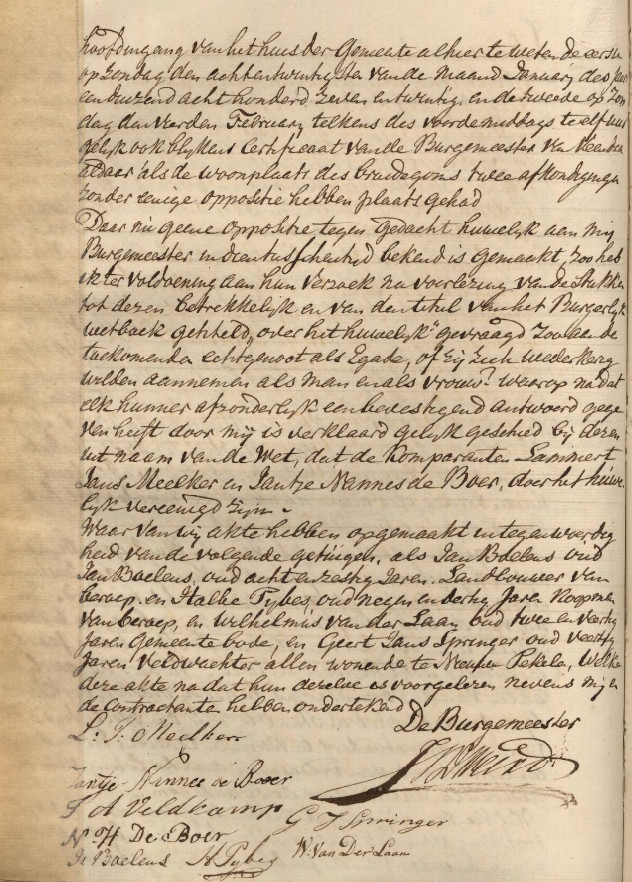 hoofdingang van het huis der Gemeente alhier te weten de eerste
op Zondag den achtentwintigsten van de maand January des Jaars
eenduizend acht honderd zeven en twintig, en de tweede op Zon
dag den vierden February, telkens des voordemiddags te elf uur
gelijk ook blykens Certificaat van de Burgemeester van Veendam
aldaar als de woonplaats des bruidegoms twee afkondigingen
zonder eenige oppositie hebben plaats gehad
Daar nu geene oppositie tegen gedacht huwelijk aan mij
Burgemeester in dientusschentyd bekend is gemaakt, zoo heb
ik ter voldoening aan hun verzoek na voorlezing van de Stukken
tot dezen betrekkelijk en van den titul van het Burgerlyk
wetboek getiteld, "over het huwelijk" gevraagd zoo aan de
toekomenden echtgenoot als Egade, of zij zich wederkerig
wilden aannemen als man en als vrouw? waarop na dat
elk hunner afzonderlyk een bevestigend antwoord gege
ven heeft door mij is verklaard gelijk geschied bij dezen
uit naam van de Wet, dat de Komparanten Lammert
Jans Meelker en Jantje Nannes de Boer, door het huwe
lijk vereenigd zijn.
Waar van wij akte hebben opgemaakt in tegenwoordig
heid van de volgende getuigen, als Jan Boelens oud
Jan Boelens, oud acht en zestig Jaren, Landbouwer van
beroep, en Italbe Tybes, oud negen en dertig Jaren Koopman
van beroep, en Wilhelmus van der Laan oud twee en veertig
Jaren Gemeente bode, en Geert Jans Springer oud veertig
Jaren Veldwachter allen wonende te Nieuwe Pekela, welke
deze akte na dat hun dezelve is voorgelezen nevens mij en
de Contractanten hebben ondertekend
De Burgemeester
L: J: Meelker
Jantje Nannes de Boer
A Veldkamp
G J Springer
N H De Boer
W. Van Der Laan
Js Boelens
H Tybes